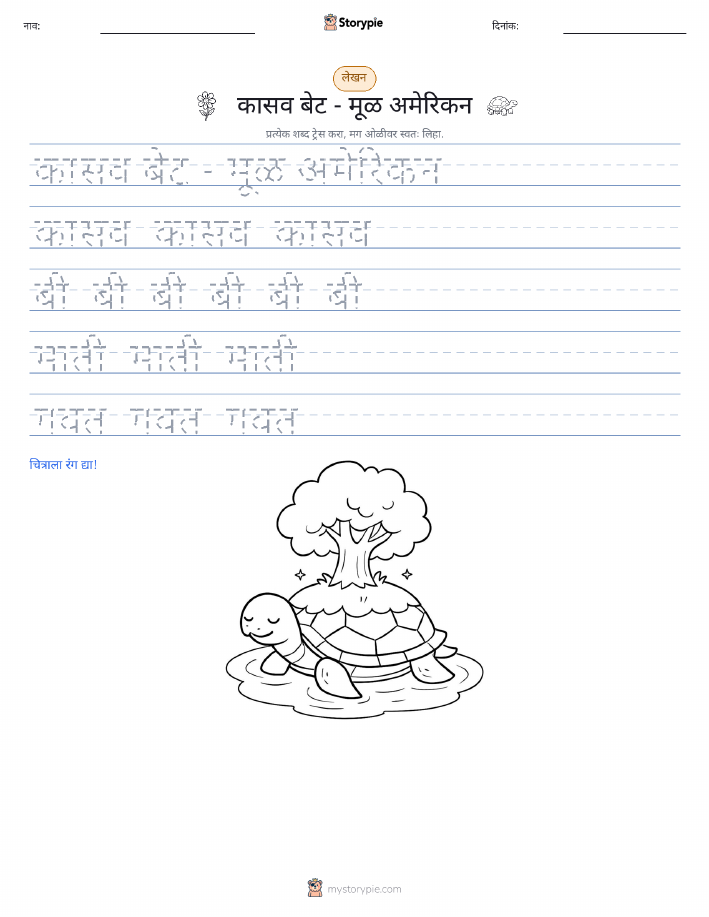 नाव:
Storypie
दिनांक:
लेखन
कासव बेट - मूळ अमेरिकन
प्रत्येक शब्द ट्रेस करा, मग ओळीवर स्वतः लिहा.
कासव बेट - मूळ अमेरिकन
कासव कासव कासव
बी बी बी बी बी बी
माती माती माती
गवत गवत गवत
चित्राला रंग द्या!
mystorypie.com